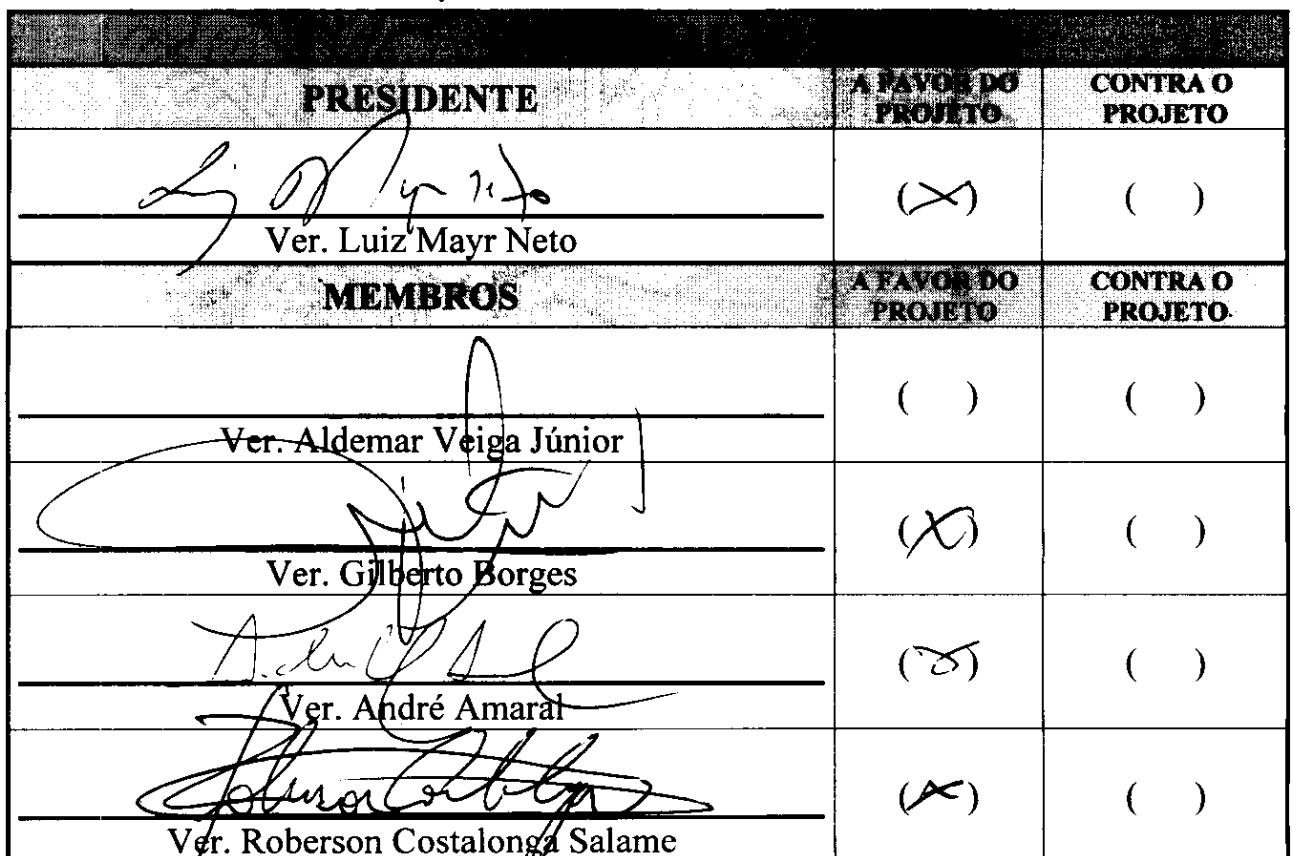 PRESIDENTE
A FAVOR DO PROJETO
CONTRA O PROJETO
(X)
( )
Ver. Luiz Mayr Neto
MEMBROS
A FAVOR DO PROJETO
CONTRA O PROJETO
( )
( )
Ver. Aldemar Veiga Júnior
(X)
( )
Ver. Gilberto Borges
(X)
( )
Ver. André Amaral
(X)
( )
Ver. Roberson Costalonga Salame